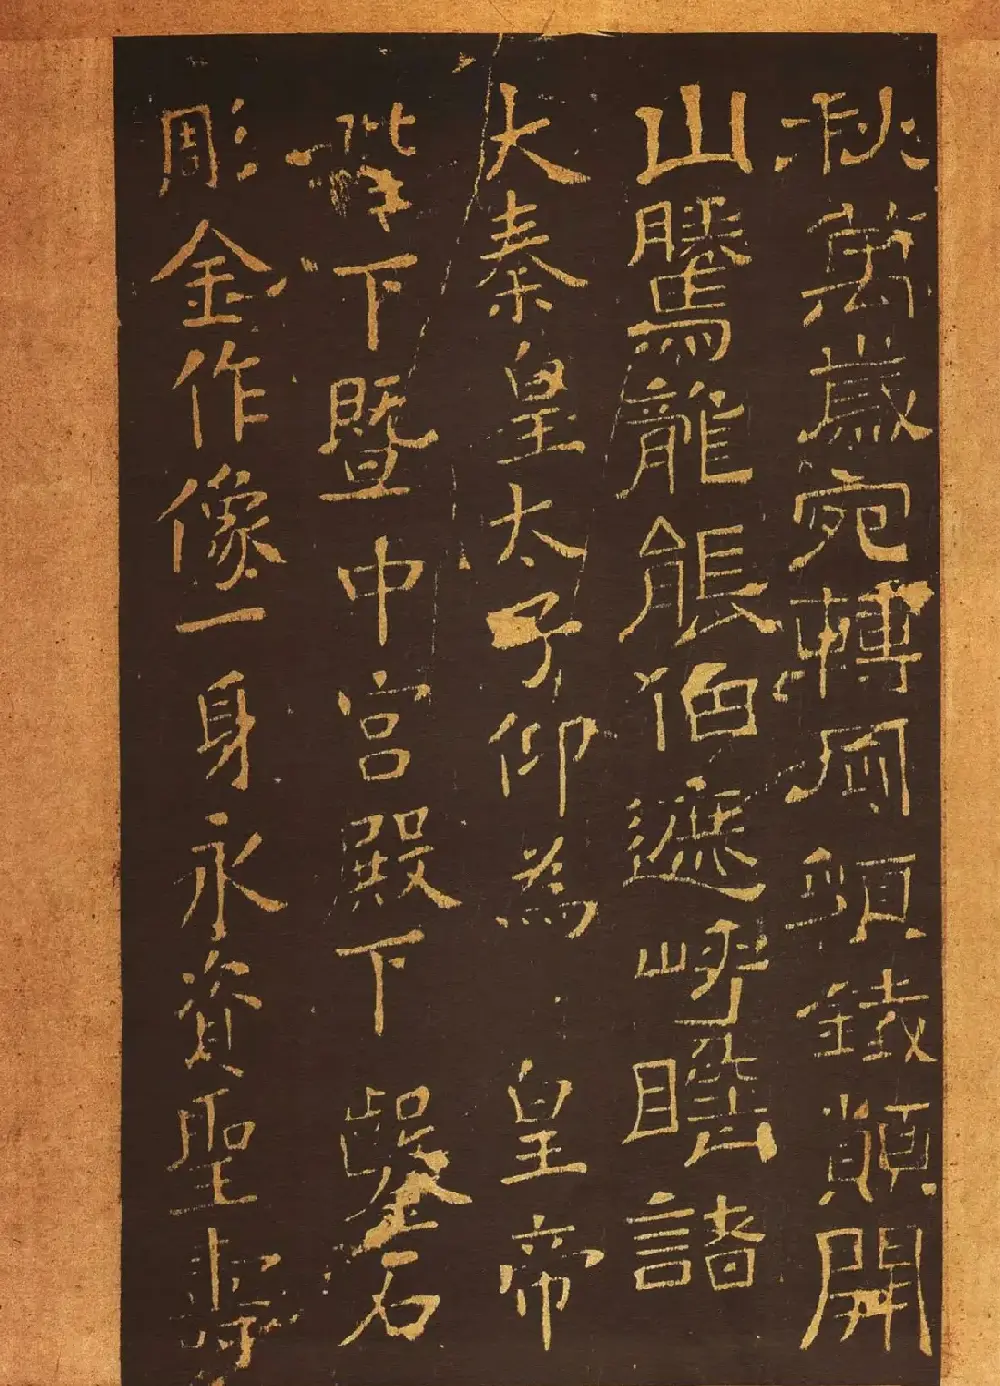 秋萬歲宛轉岡頭鐵開
山騰龍伯瞻諸
大秦皇太子仰為 皇帝
陛下暨中宮殿下 鑿石
彫金作像一身永資聖壽